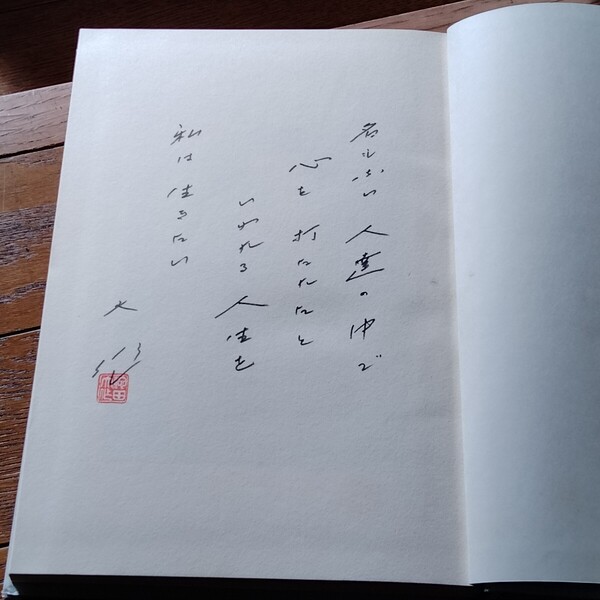 名もない人達の中で
心を打たれたと
いわれる人生を
私は生きたい